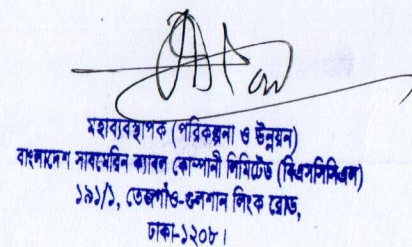 মহাব্যবস্থাপক (পরিকল্পনা ও উন্নয়ন)
বাংলাদেশ সাবমেরিন ক্যাবল কোম্পানী লিমিটেড (বিএসসিসিএল)
১৯১/১, তেজগাঁও-গুলশান লিংক রোড,
ঢাকা-১২০৮।